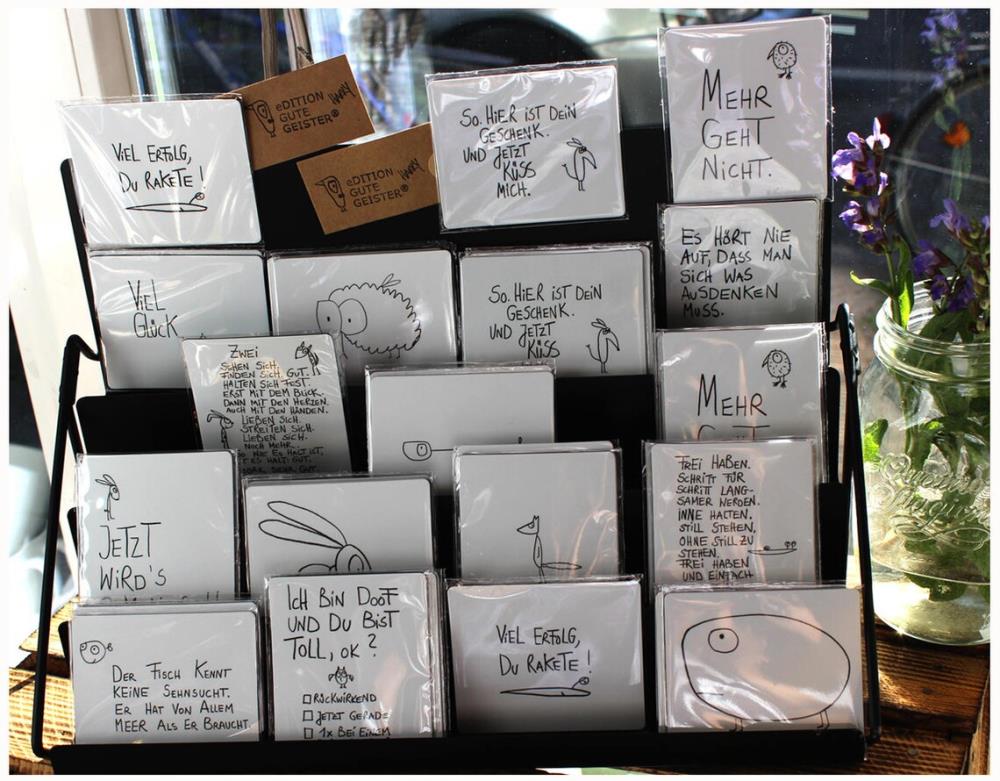 VIEL ERFOLG,
DU RAKETE!
eDITION
GUTE
GEISTER®
HARRY
eDITION
GUTE
GEISTER®
HARRY
SO. HIER IST DEIN
GESCHENK.
UND JETZT
KÜSS
MICH.
MEHR
GEHT
NICHT.
VIEL
GLÜCK
SO. HIER IST DEIN
GESCHENK.
UND JETZT
KÜSS
ES HÖRT NIE
AUF, DASS MAN
SICH WAS
AUSDENKEN
MUSS.
ZWEI
SEHEN SICH.
FINDEN SICH. GUT.
HALTEN SICH FEST.
ERST MIT DEM BLICK.
DANN MIT DEN HERZEN.
AUCH MIT DEN HÄNDEN.
LIEBEN SICH.
STREITEN SICH.
LIEBEN SICH.
NOCH MEHR.
SO WIE ES HALT IST,
ES HALT GUT
SEHR GUT
MEHR
JETZT
WIRD'S
FREI HABEN.
SCHRITT FÜR
SCHRITT LANG-
SAMER WERDEN.
INNE HALTEN.
STILL STEHEN,
OHNE STILL ZU
STEHEN.
FREI HABEN
UND EINFACH
DER FISCH KENNT
KEINE SEHNSUCHT.
ER HAT VON ALLEM
MEER ALS ER BRAUCHT
ICH BIN DOOF
UND DU BIST
TOLL, OK?
RÜCKWIRKEND
JETZT GERADE
1X BEI EINEM
VIEL ERFOLG,
DU RAKETE!